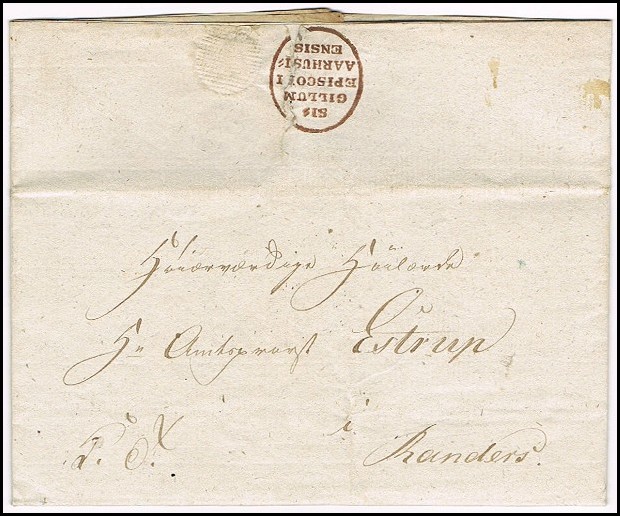 SI=
GILLUM
EPISCOPI
AARHUSI=
ENSIS
Höiærværdige Höilærde
Hr Amtsprovst Estrup
i
Randers.